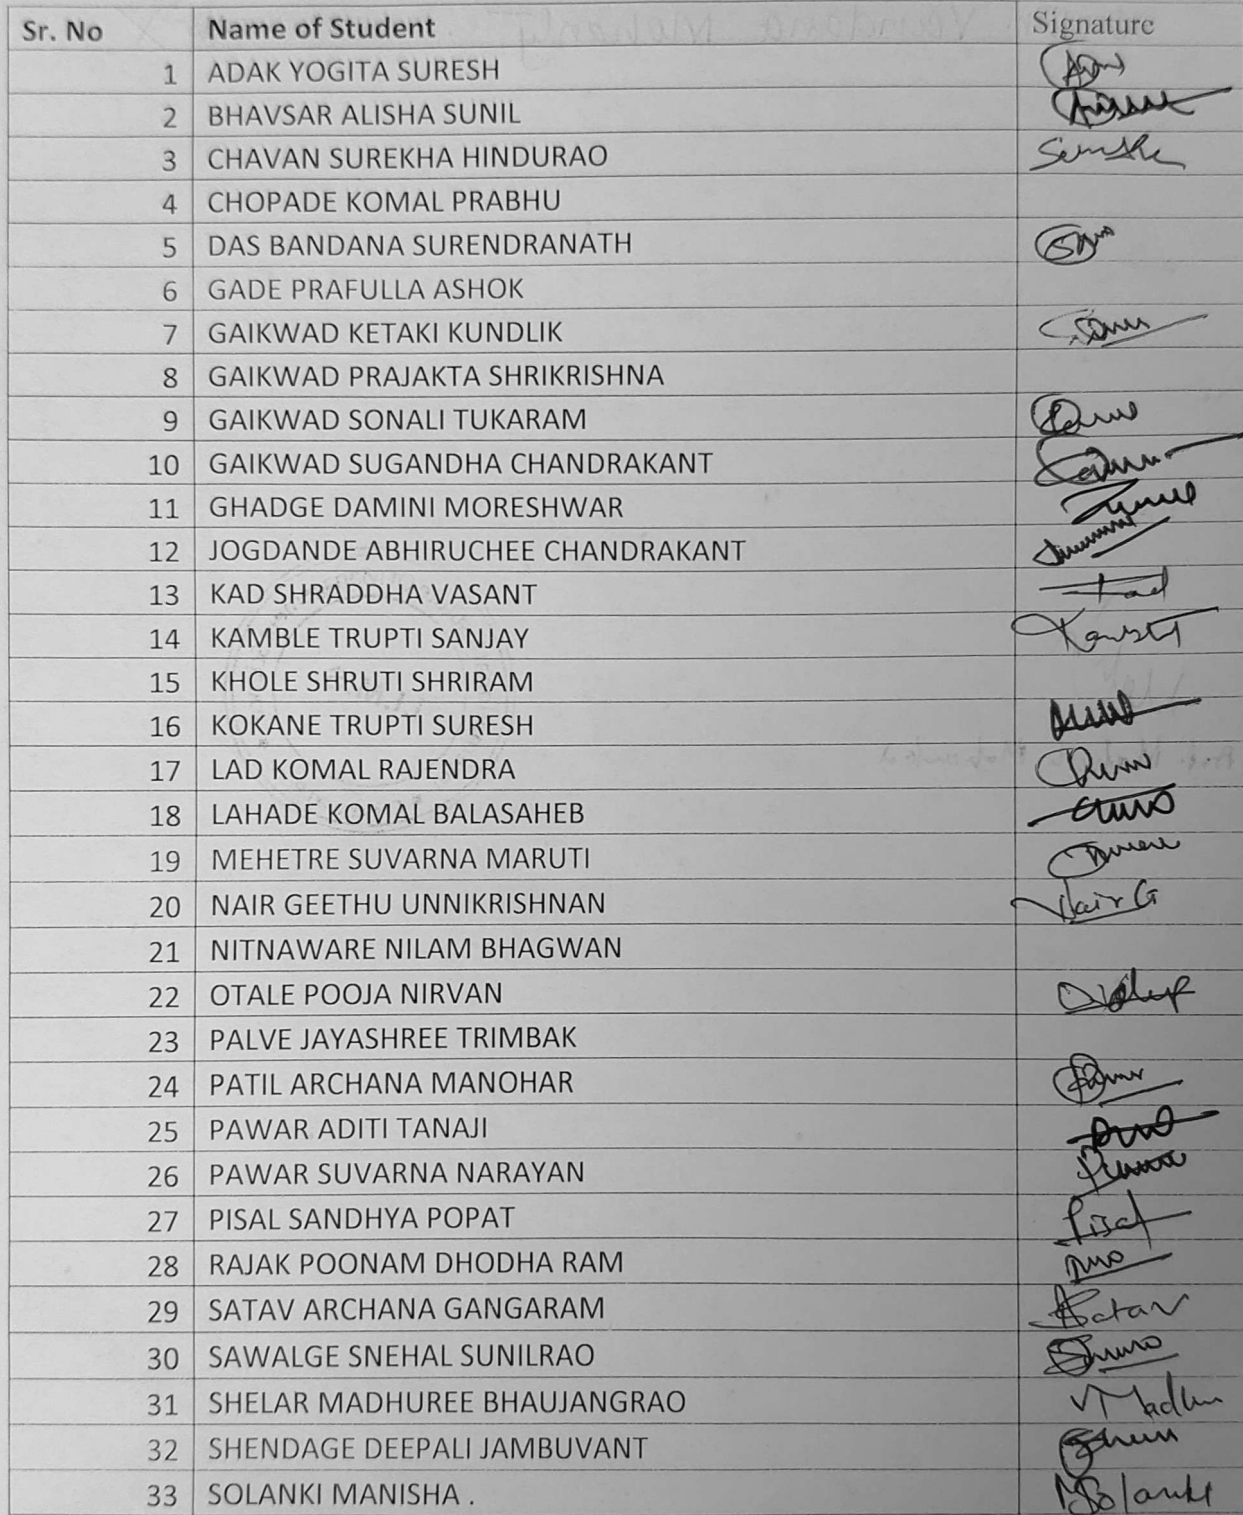 Sr. No Name of Student Signature
1 ADAK YOGITA SURESH
2 BHAVSAR ALISHA SUNIL
3 CHAVAN SUREKHA HINDURAO
4 CHOPADE KOMAL PRABHU
5 DAS BANDANA SURENDRANATH
6 GADE PRAFULLA ASHOK
7 GAIKWAD KETAKI KUNDLIK
8 GAIKWAD PRAJAKTA SHRIKRISHNA
9 GAIKWAD SONALI TUKARAM
10 GAIKWAD SUGANDHA CHANDRAKANT
11 GHADGE DAMINI MORESHWAR
12 JOGDANDE ABHIRUCHEE CHANDRAKANT
13 KAD SHRADDHA VASANT
14 KAMBLE TRUPTI SANJAY
15 KHOLE SHRUTI SHRIRAM
16 KOKANE TRUPTI SURESH
17 LAD KOMAL RAJENDRA
18 LAHADE KOMAL BALASAHEB
19 MEHETRE SUVARNA MARUTI
20 NAIR GEETHU UNNIKRISHNAN Nair G
21 NITNAWARE NILAM BHAGWAN
22 OTALE POOJA NIRVAN
23 PALVE JAYASHREE TRIMBAK
24 PATIL ARCHANA MANOHAR
25 PAWAR ADITI TANAJI
26 PAWAR SUVARNA NARAYAN
27 PISAL SANDHYA POPAT Pisal
28 RAJAK POONAM DHODHA RAM
29 SATAV ARCHANA GANGARAM ASatav
30 SAWALGE SNEHAL SUNILRAO
31 SHELAR MADHUREE BHAUJANGRAO Madhu
32 SHENDAGE DEEPALI JAMBUVANT
33 SOLANKI MANISHA . MSolanki